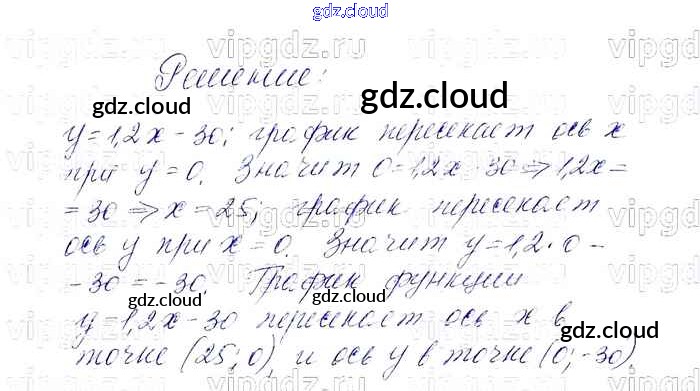 gdz.cloud
vipgdz.ru
Решение:
gdz.cloud
gdz.cloud
y=1,2x-30; график пересекает ось x
при y=0. Значит 0=1,2x-30⇒1,2x=
=30⇒x=25; график пересекает
ось y при x=0. Значит y=1,2·0-
-30=-30. График функции
gdz.cloud gdz.cloud gdz.cloud
y=1,2x-30 пересекает ось x в
точке (25;0) и ось y в точке (0;-30).